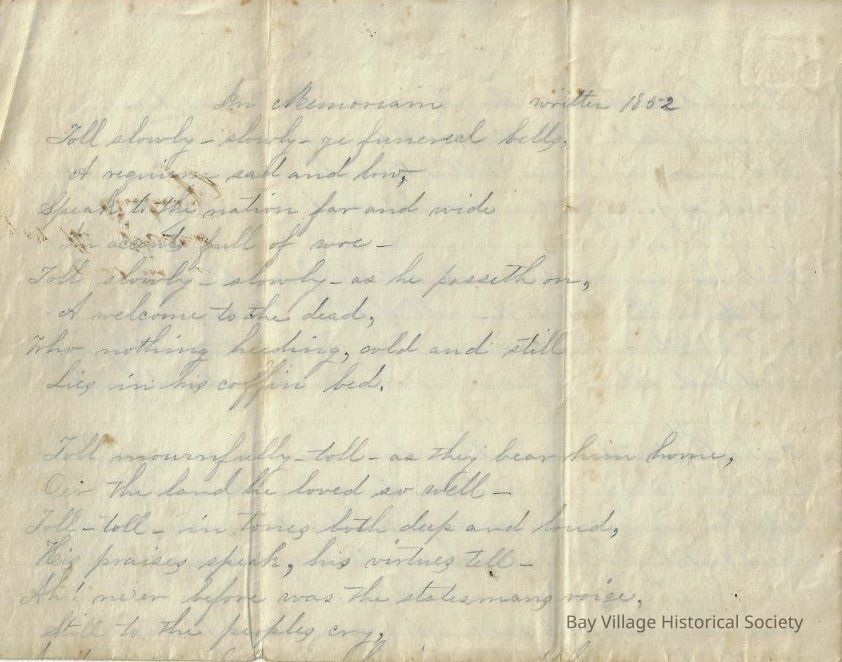 In Memoriam written 1852
Toll slowly - slowly - ye funereal bells,
A requiem sad and low,
Speak to the nation far and wide
In accents full of woe -
Toll slowly - slowly - as he passeth on,
A welcome to the dead,
Who nothing heeding, cold and still
Lies in his coffin bed.
Toll mournfully - toll - as they bear him home,
O'er the land he loved so well -
Toll - toll - in tones both deep and loud,
His praises speak, his virtues tell -
Ah! ne'er before was the statesmans voice,
Still to the peoples cry,
Bay Village Historical Society